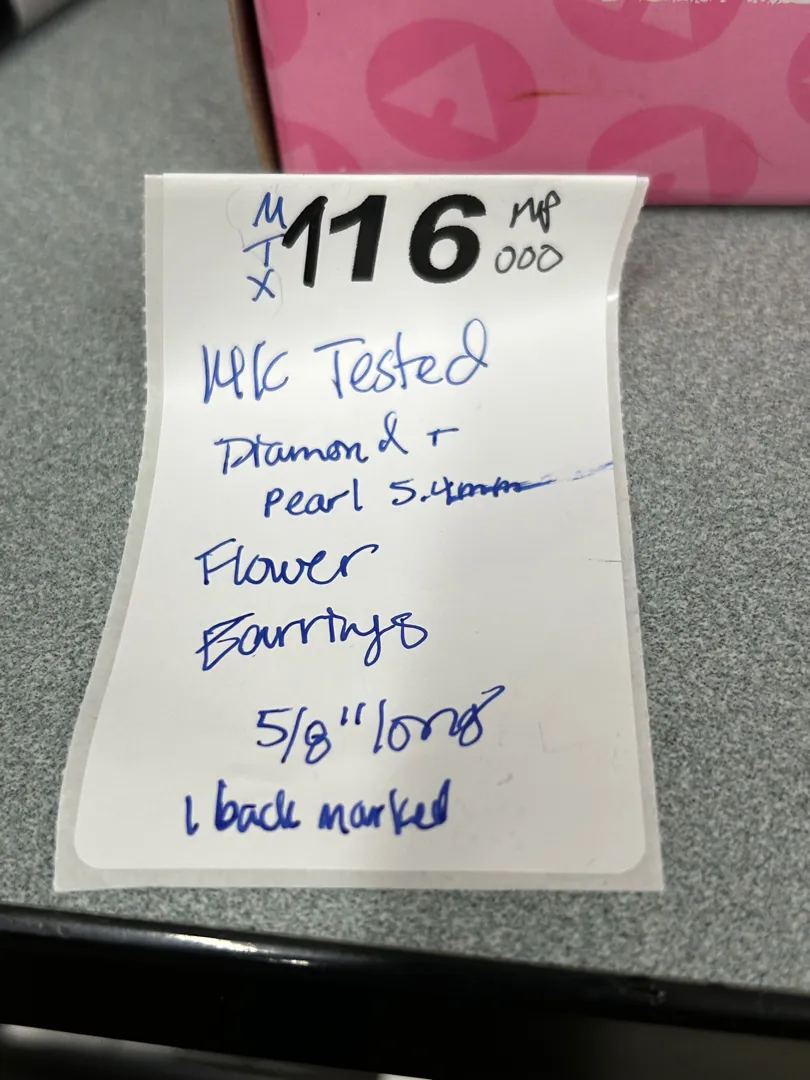 MTX 116 MP
000
14K Tested
Diamond +
Pearl 5.4mm
Flower
Earrings
5/8" long
1 back marked